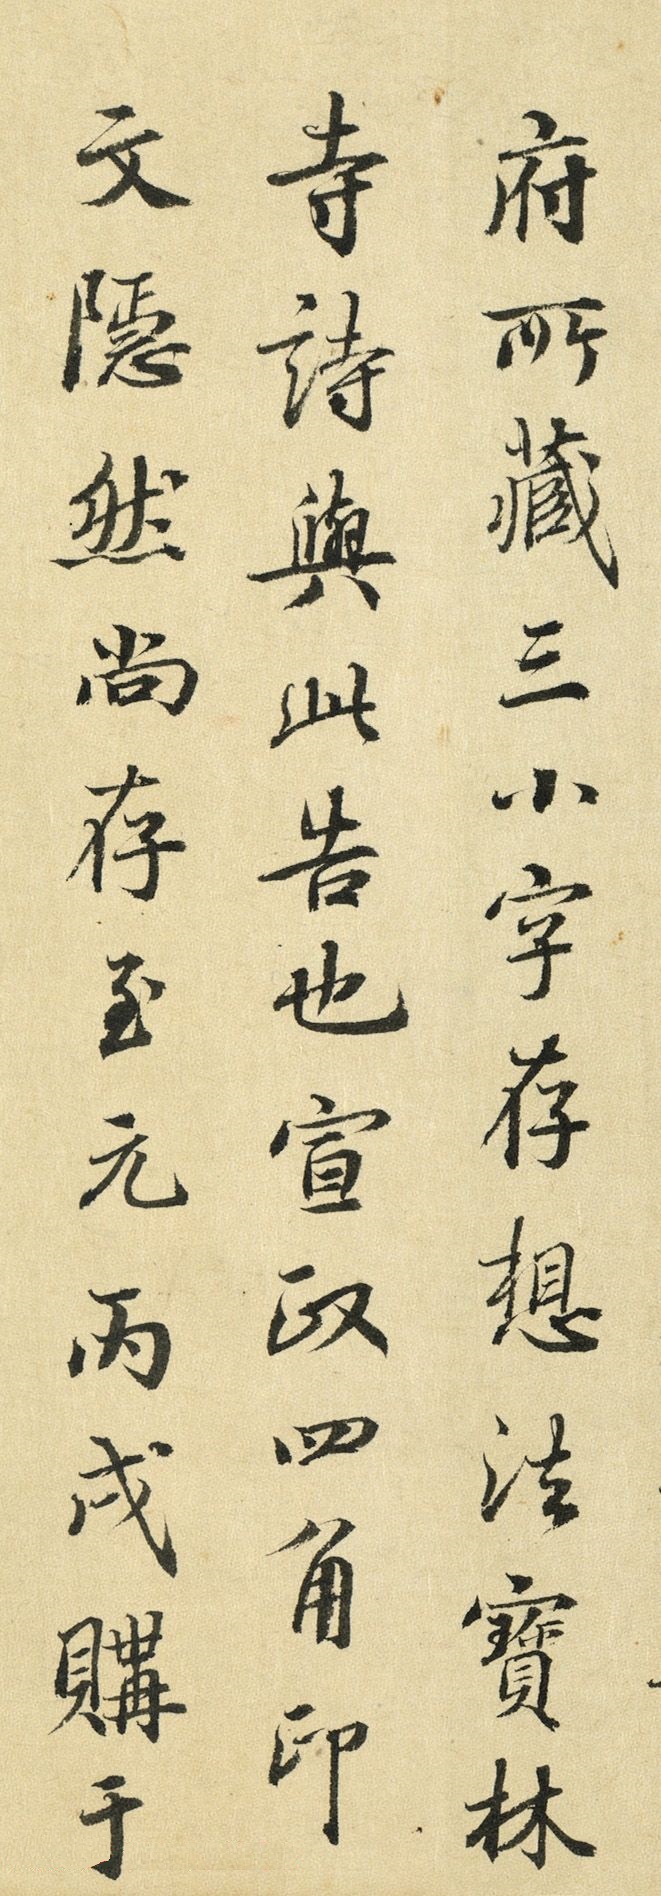 府所藏三小字存想法寶林
寺詩與此告也宣政四角印
文隱然尚存至元丙戌購于